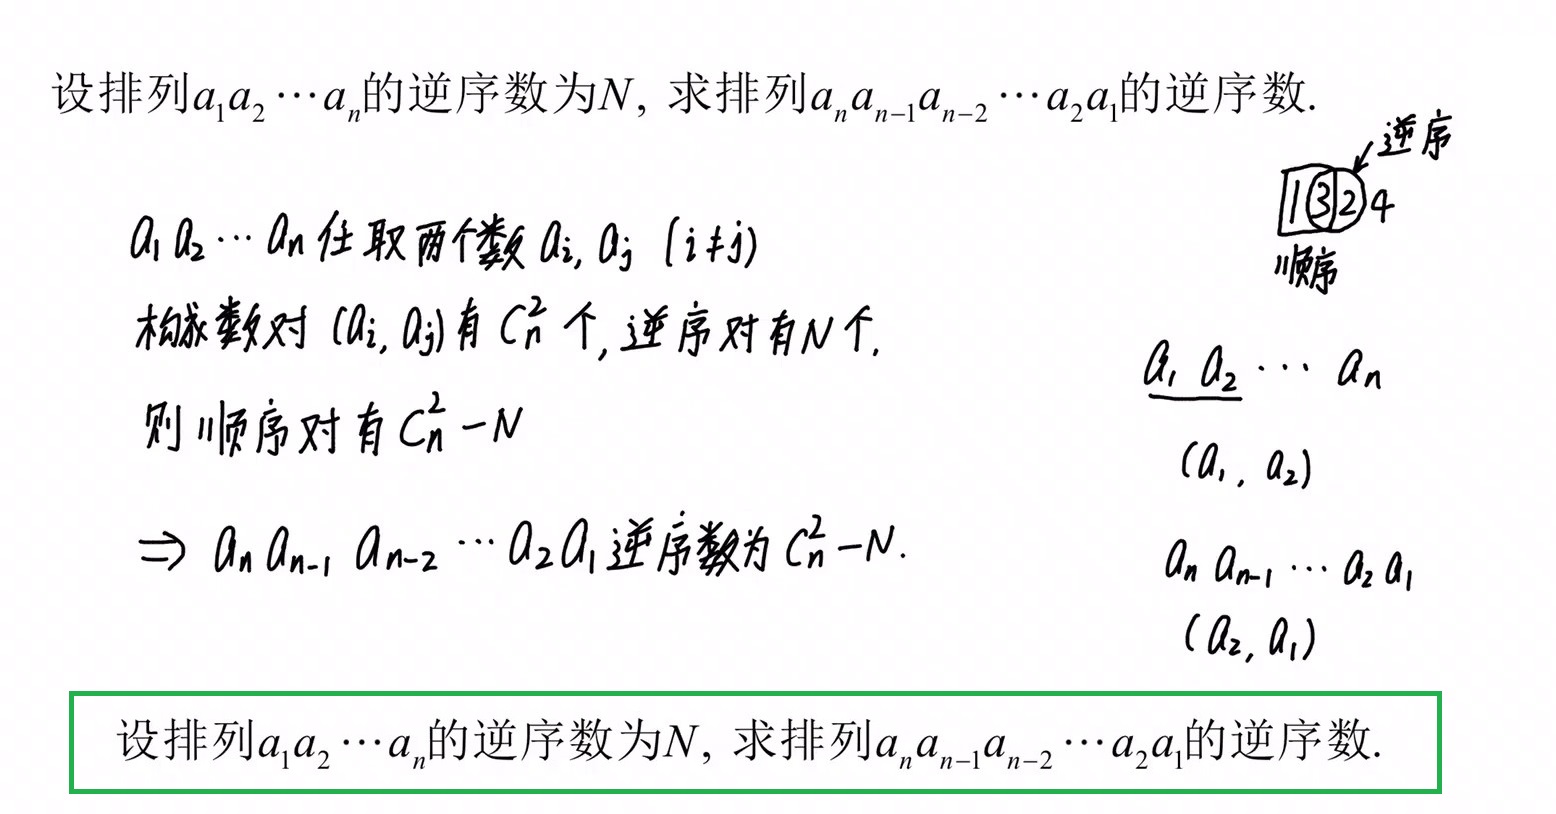 设排列a₁a₂⋯aₙ的逆序数为N, 求排列aₙaₙ₋₁aₙ₋₂⋯a₂a₁的逆序数.
逆序
1 3 2 4
顺序
a₁ a₂ ⋯ aₙ 任取两个数 aᵢ, aⱼ (i≠j)
构成数对 (aᵢ, aⱼ) 有 Cₙ² 个, 逆序对有N个.
则顺序对有 Cₙ² − N
⇒ aₙ aₙ₋₁ aₙ₋₂ ⋯ a₂ a₁ 逆序数为 Cₙ² − N.
a₁ a₂ ⋯ aₙ
(a₁, a₂)
aₙ aₙ₋₁ ⋯ a₂ a₁
(a₂, a₁)
设排列a₁a₂⋯aₙ的逆序数为N, 求排列aₙaₙ₋₁aₙ₋₂⋯a₂a₁的逆序数.